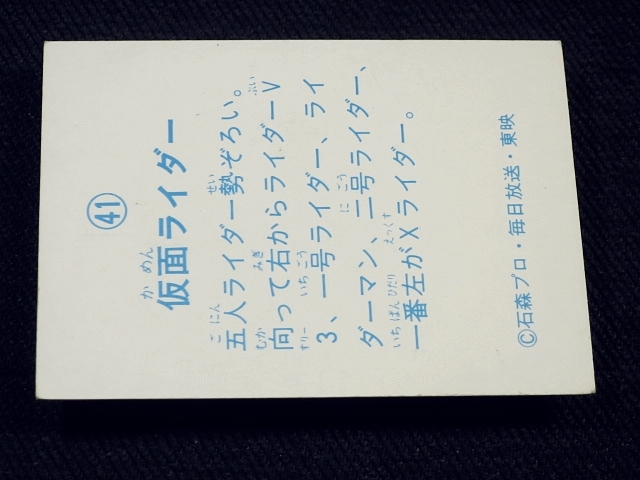 ㊶
仮面ライダー
五人ライダー勢ぞろい。
向って右からライダーV
3、一号ライダー、ライ
ダーマン、二号ライダー、
一番左がXライダー。
©石森プロ・毎日放送・東映